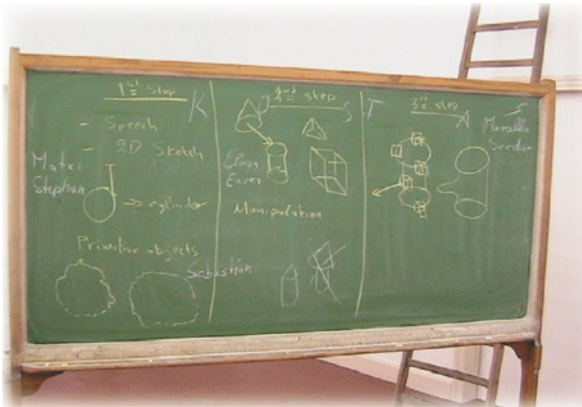 1st Step
- Speech
- 2D Sketch
Matei
Stephan
→ cylinder
Primitive objects
Sebastian
K
2nd step
S
Manipulation
T
3rd step
A
S
Serdar